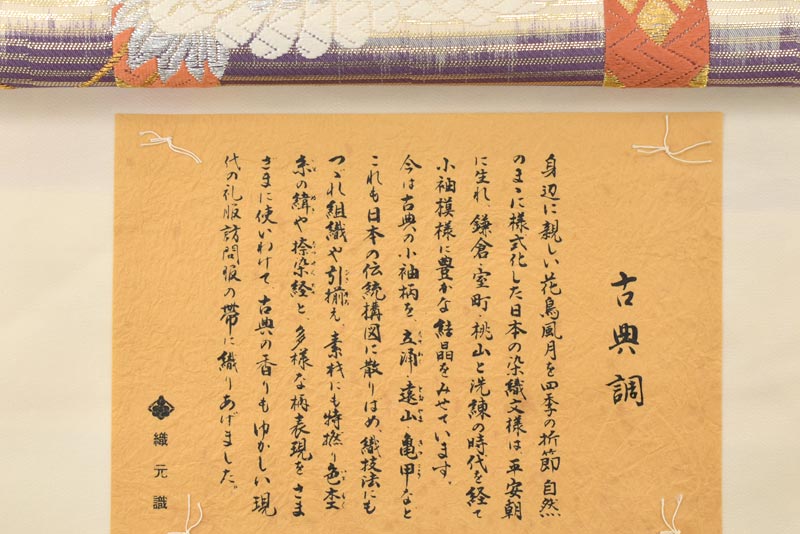 古典調
身辺に親しい花鳥風月を四季の折節、自然
のまゝに様式化した日本の染織文様は、平安朝
に生れ、鎌倉・室町・桃山と洗練の時代を経て
小袖模様に豊かな結晶をみせています。
今は古典の小袖柄を、立涌・遠山・亀甲など
これも日本の伝統構図に散りばめ、織技法にも
つゞれ組織や引揃え、素材にも特撚り色杢
糸の緯や捺染経と、多様な柄表現を さま
ざまに使いわけて、古典の香りもゆかしい現
代の礼服訪問服の帯に織りあげました。
織元識